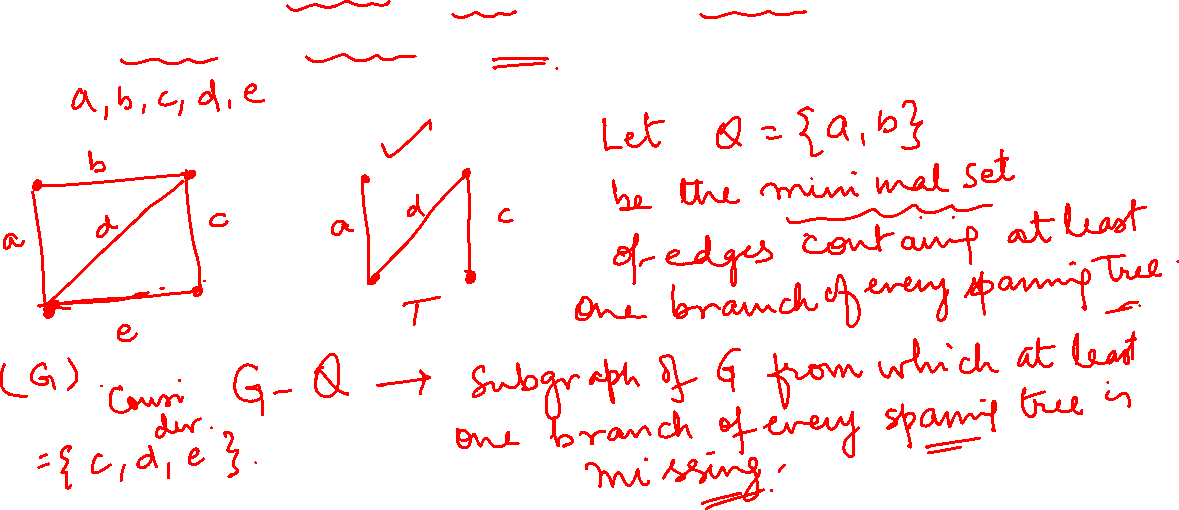 a, b, c, d, e
b
a
d
c
e
(G).
a
d
c
T
Let Q = {a, b}
be the minimal set
of edges containg at least
one branch of every spannig Tree.
Consi
der.
G - Q → Subgraph of G from which at least
one branch of every spannig tree is
missing.
= { c, d, e }.